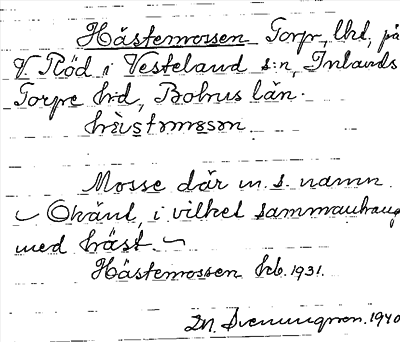 Hästemossen Torp, lht, på
V. Röd i Vesteland s:n, Inlands
Torpe hd, Bohus län.
hä̀stəmɔsən

Mosse där m. s. namn.
~ Okänt, i vilket sammanhang
med häst. ~
Hästemossen hb. 1931.

M. Svenungsson. 1940